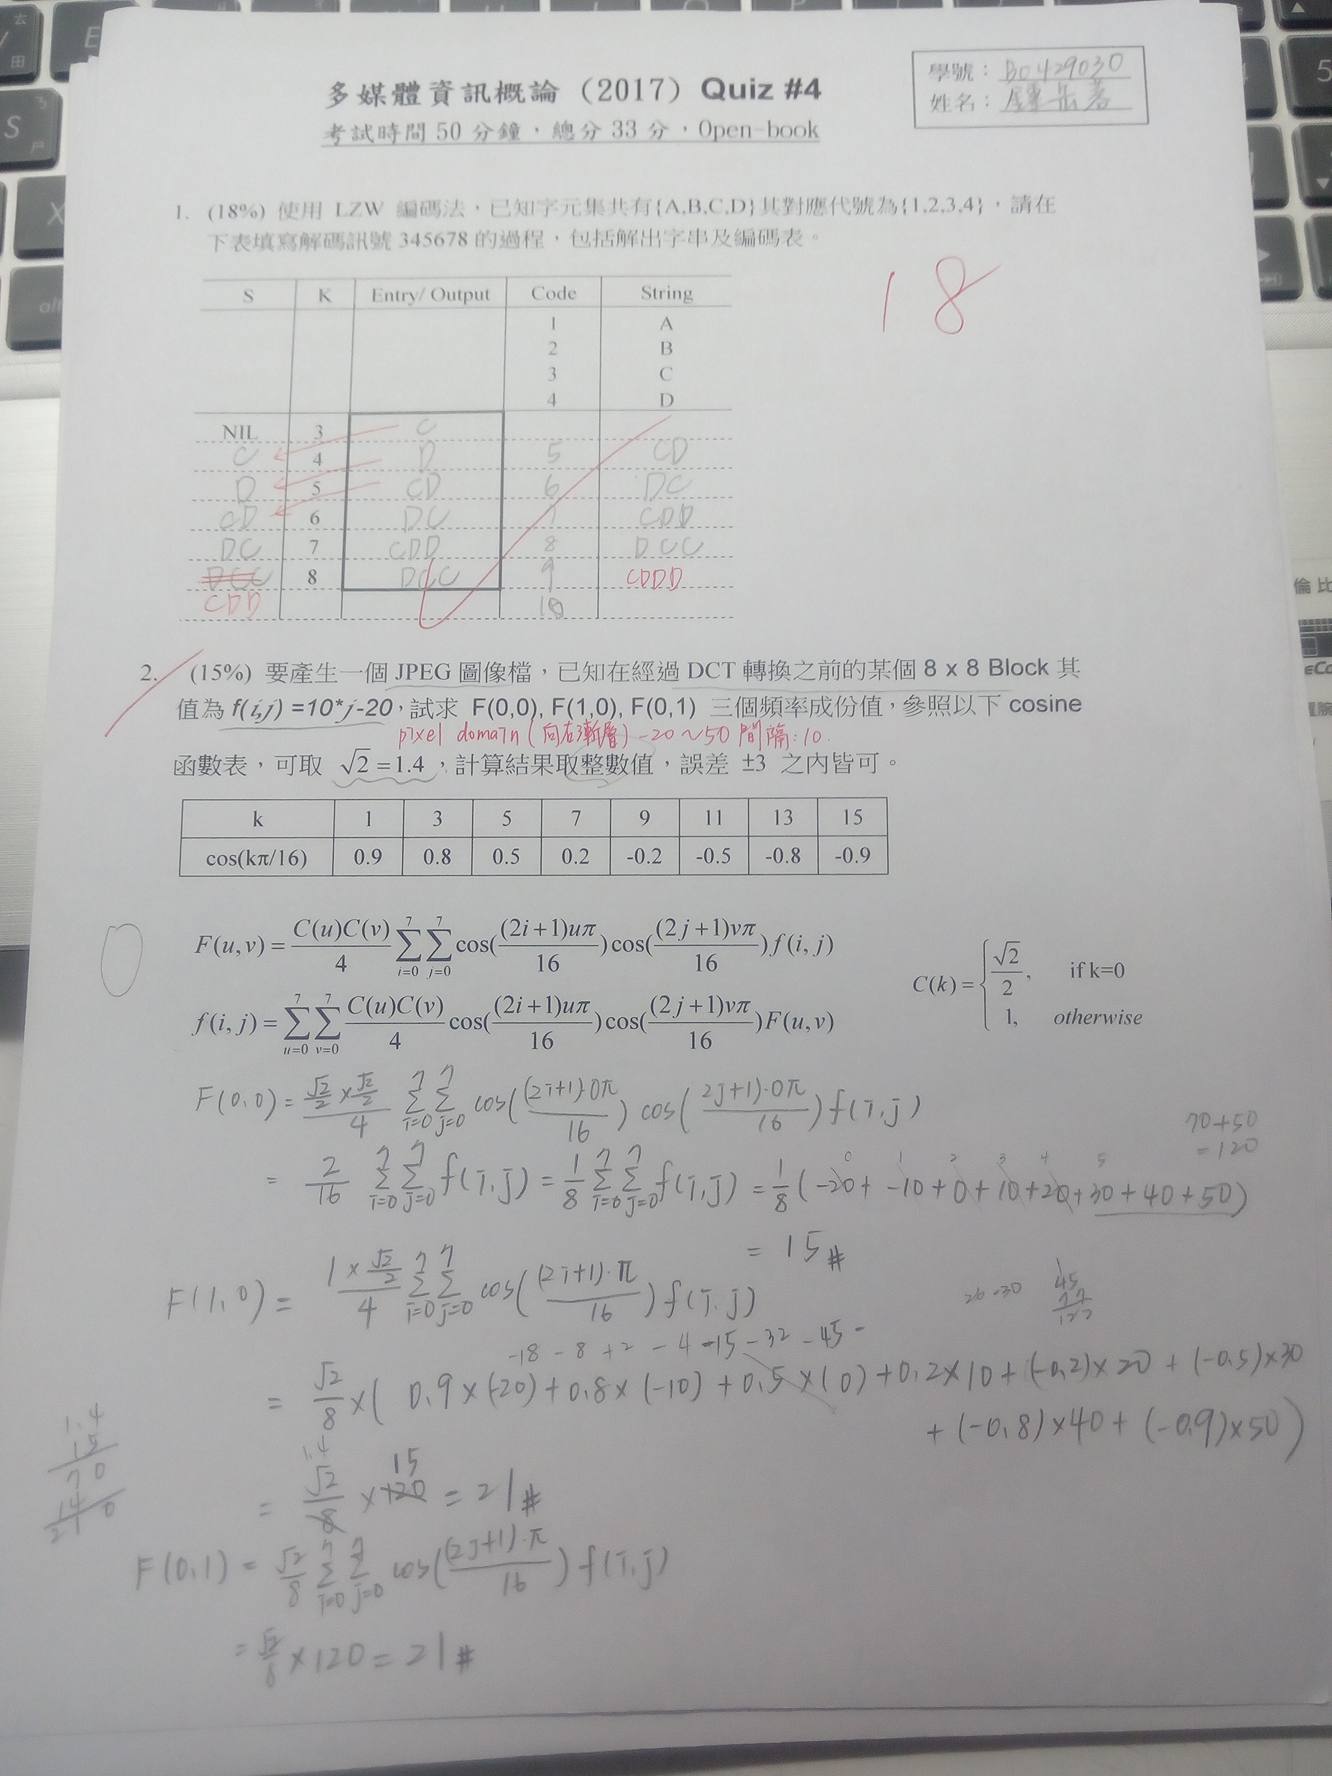 多媒體資訊概論（2017）Quiz #4
考試時間 50 分鐘，總分 33 分，Open-book
學號：B0429030
姓名：
18
1. (18%) 使用 LZW 編碼法，已知字元集共有{A,B,C,D}其對應代號為{1,2,3,4}，請在
下表填寫解碼訊號 345678 的過程，包括解出字串及編碼表。
S K Entry/ Output Code String
1 A
2 B
3 C
4 D
NIL 3 C
C 4 D 5 CD
D 5 CD 6 DC
CD 6 DC 7 CDD
DC 7 CDD 8 DCC
DCC 8 DCC 9 CDDD
CDD 10
2. (15%) 要產生一個 JPEG 圖像檔，已知在經過 DCT 轉換之前的某個 8 x 8 Block 其
值為 f(i,j) =10*j-20，試求 F(0,0), F(1,0), F(0,1) 三個頻率成份值，參照以下 cosine
pixel domain (向右漸層) -20～50 間隔:10.
函數表，可取 √2 =1.4，計算結果取整數值，誤差 ±3 之內皆可。
k 1 3 5 7 9 11 13 15
cos(kπ/16) 0.9 0.8 0.5 0.2 -0.2 -0.5 -0.8 -0.9
0
F(u,v) = C(u)C(v)/4 Σ(i=0..7) Σ(j=0..7) cos((2i+1)uπ/16) cos((2j+1)vπ/16) f(i,j)
C(k) = { √2/2, if k=0
1, otherwise
f(i,j) = Σ(u=0..7) Σ(v=0..7) C(u)C(v)/4 cos((2i+1)uπ/16) cos((2j+1)vπ/16) F(u,v)
F(0,0) = (√2/2 × √2/2)/4 Σ(i=0..7) Σ(j=0..7) cos((2i+1)·0π/16) cos((2j+1)·0π/16) f(i,j)
70+50
=120
0 1 2 3 4 5
= 2/16 Σ(i=0..7) Σ(j=0..7) f(i,j) = 1/8 Σ(i=0..7) Σ(j=0..7) f(i,j) = 1/8 (-20 + -10 + 0 + 10 + 20 + 30 + 40 + 50)
= 15 #
F(1,0) = (1 × √2/2)/4 Σ(i=0..7) Σ(j=0..7) cos((2i+1)·π/16) f(i,j)
-18 - 8 + 2 - 4 - 15 - 32 - 45 -
= √2/8 × ( 0.9×(-20) + 0.8×(-10) + 0.5×(0) + 0.2×10 + (-0.2)×20 + (-0.5)×30
+ (-0.8)×40 + (-0.9)×50 )
1.4
15
70
14
210
1.4 15
= √2/8 × 120 = 21 #
F(0,1) = √2/8 Σ(i=0..7) Σ(j=0..7) cos((2j+1)·π/16) f(i,j)
= √2/8 × 120 = 21 #